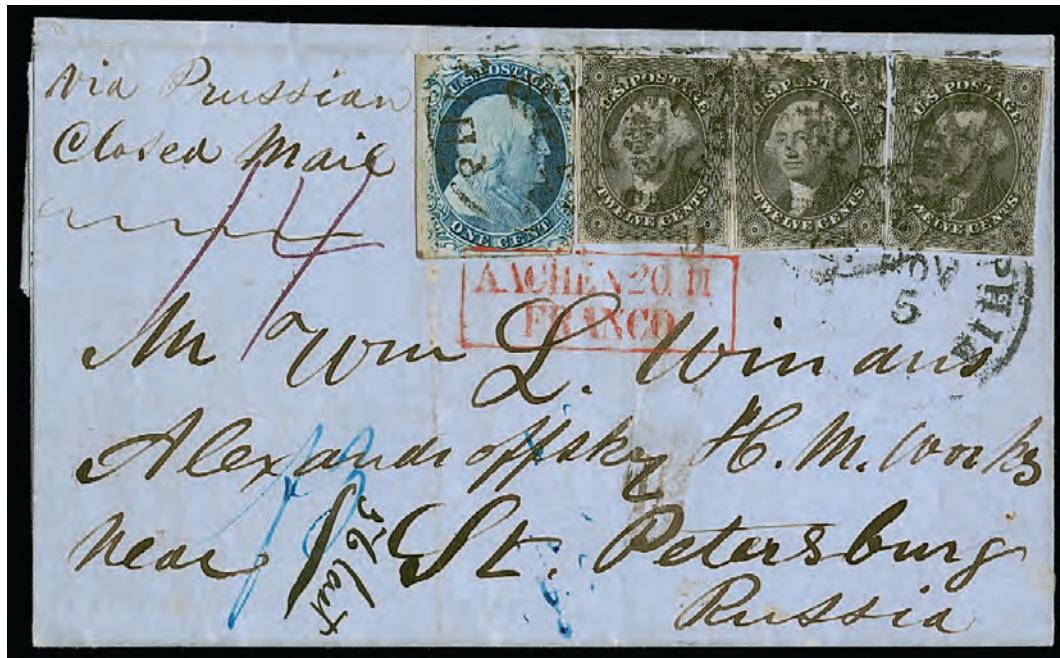 via Prussian
Closed Mail
14
U.S. POSTAGE
ONE CENT
U.S. POSTAGE
TWELVE CENTS
U.S. POSTAGE
TWELVE CENTS
U.S. POSTAGE
TWELVE CENTS
AACHEN 20 11
FRANCO
NOV
5
PHIL
Mr Wm L. Winans
Alexandroffsky H. M. Works
near St. Petersburg
Russia